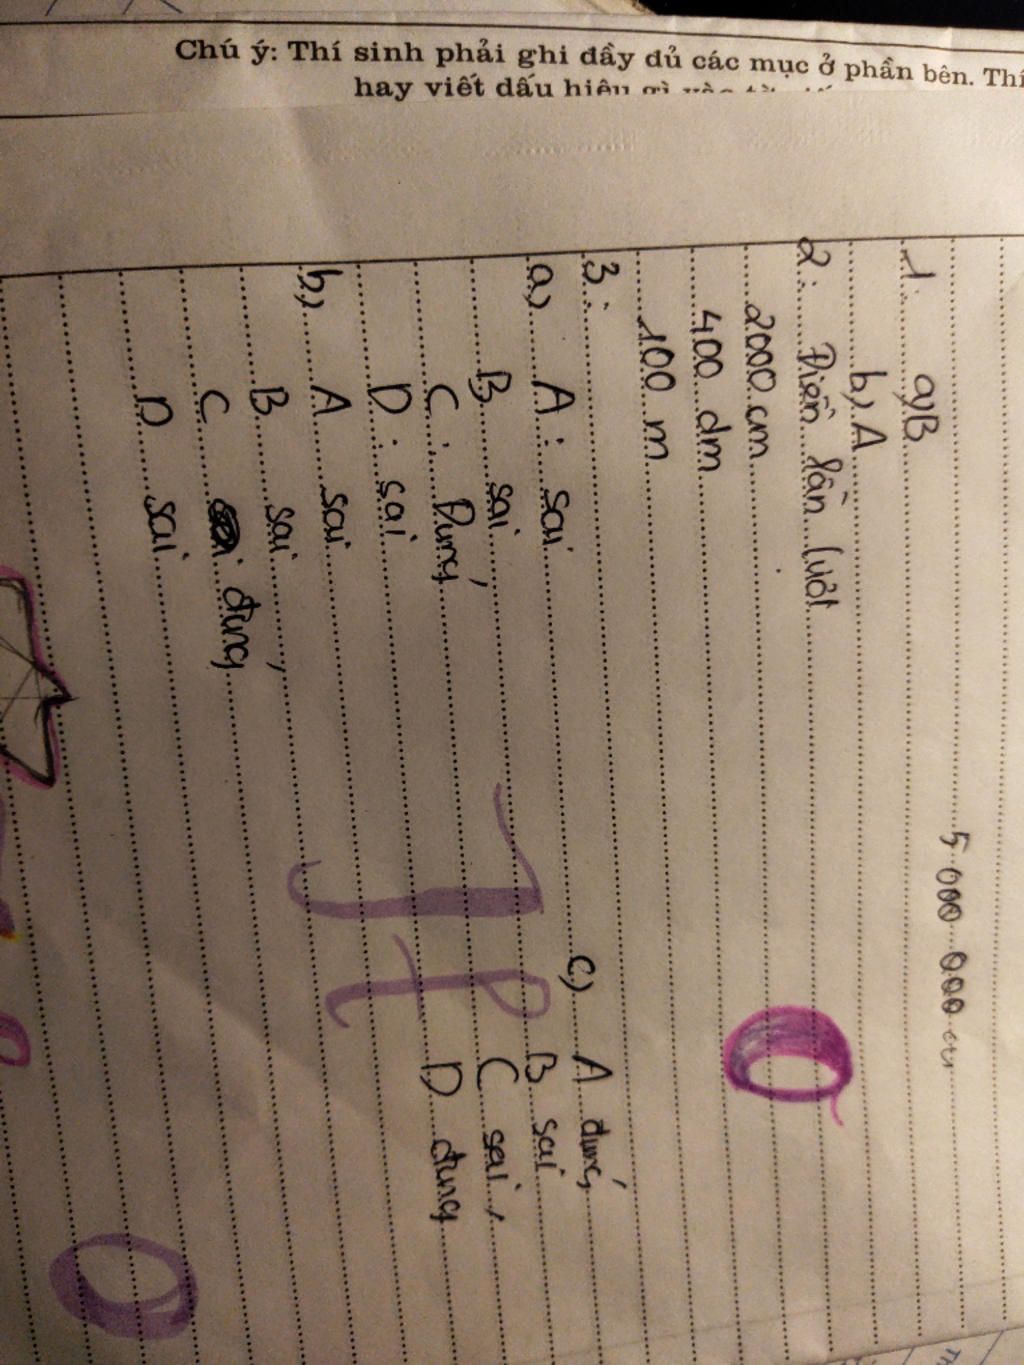 Chú ý: Thí sinh phải ghi đầy đủ các mục ở phần bên. Thí
hay viết dấu hiệu gì vào
5 000 000 cm
1. a) B
b) A
2: Điền lần lượt
2000 cm
400 dm
100 m
3:
a) A: sai
B, sai
C: Đúng
D: sai
b) A sai
B sai
C đúng
D sai
c) A đúng
B sai
C sai
D đúng